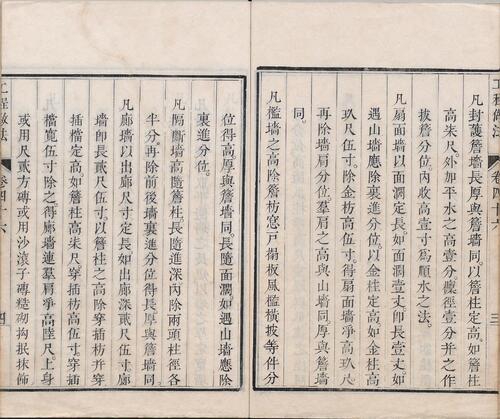 工程做法 卷四十六 三
凡封護簷墻長厚與簷墻同。以簷柱定高。如簷柱
高柒尺。外加平水之高壹分。檁徑壹分。并之作
拔簷分位。內收高壹寸。爲順水之法。
凡扇面墻以面濶定長。如面濶壹丈。卽長壹丈。如
遇山墻應除裏進分位。以金柱定高。如金柱高
玖尺伍寸。除金枋高伍寸。得扇面墻凈高玖尺。
再除墻肩分位。羣肩之高與山墻同。厚與簷墻
同。
凡檻墻之高除簷枋窓戶搨板風檻橫披等件分
位得高。厚與簷墻同。長隨面濶。如遇山墻應除
裏進分位。
凡隔斷墻高隨簷柱。長隨進深。內除兩頭柱徑各
半分。再除前後墻裏進分位得長。厚與簷墻同。
凡廊墻以出廊尺寸定長。如出廊深貳尺伍寸。廊
墻卽長貳尺伍寸。以簷柱之高除穿插枋并穿
插檔定高。如簷柱高柒尺。穿插枋高伍寸。穿插
檔寬伍寸。除之。得廊墻連羣肩凈高陸尺。上身
或用尺貳方磚。或用沙滾子磚糙砌。拘抿抹飾
工程做法 卷四十六 四